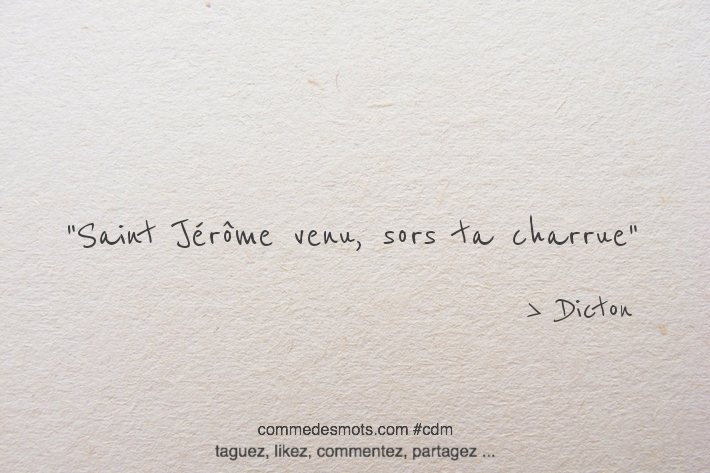 "Saint Jérôme venu, sors ta charrue"
> Dicton
commedesmots.com #cdm
taguez, likez, commentez, partagez ...